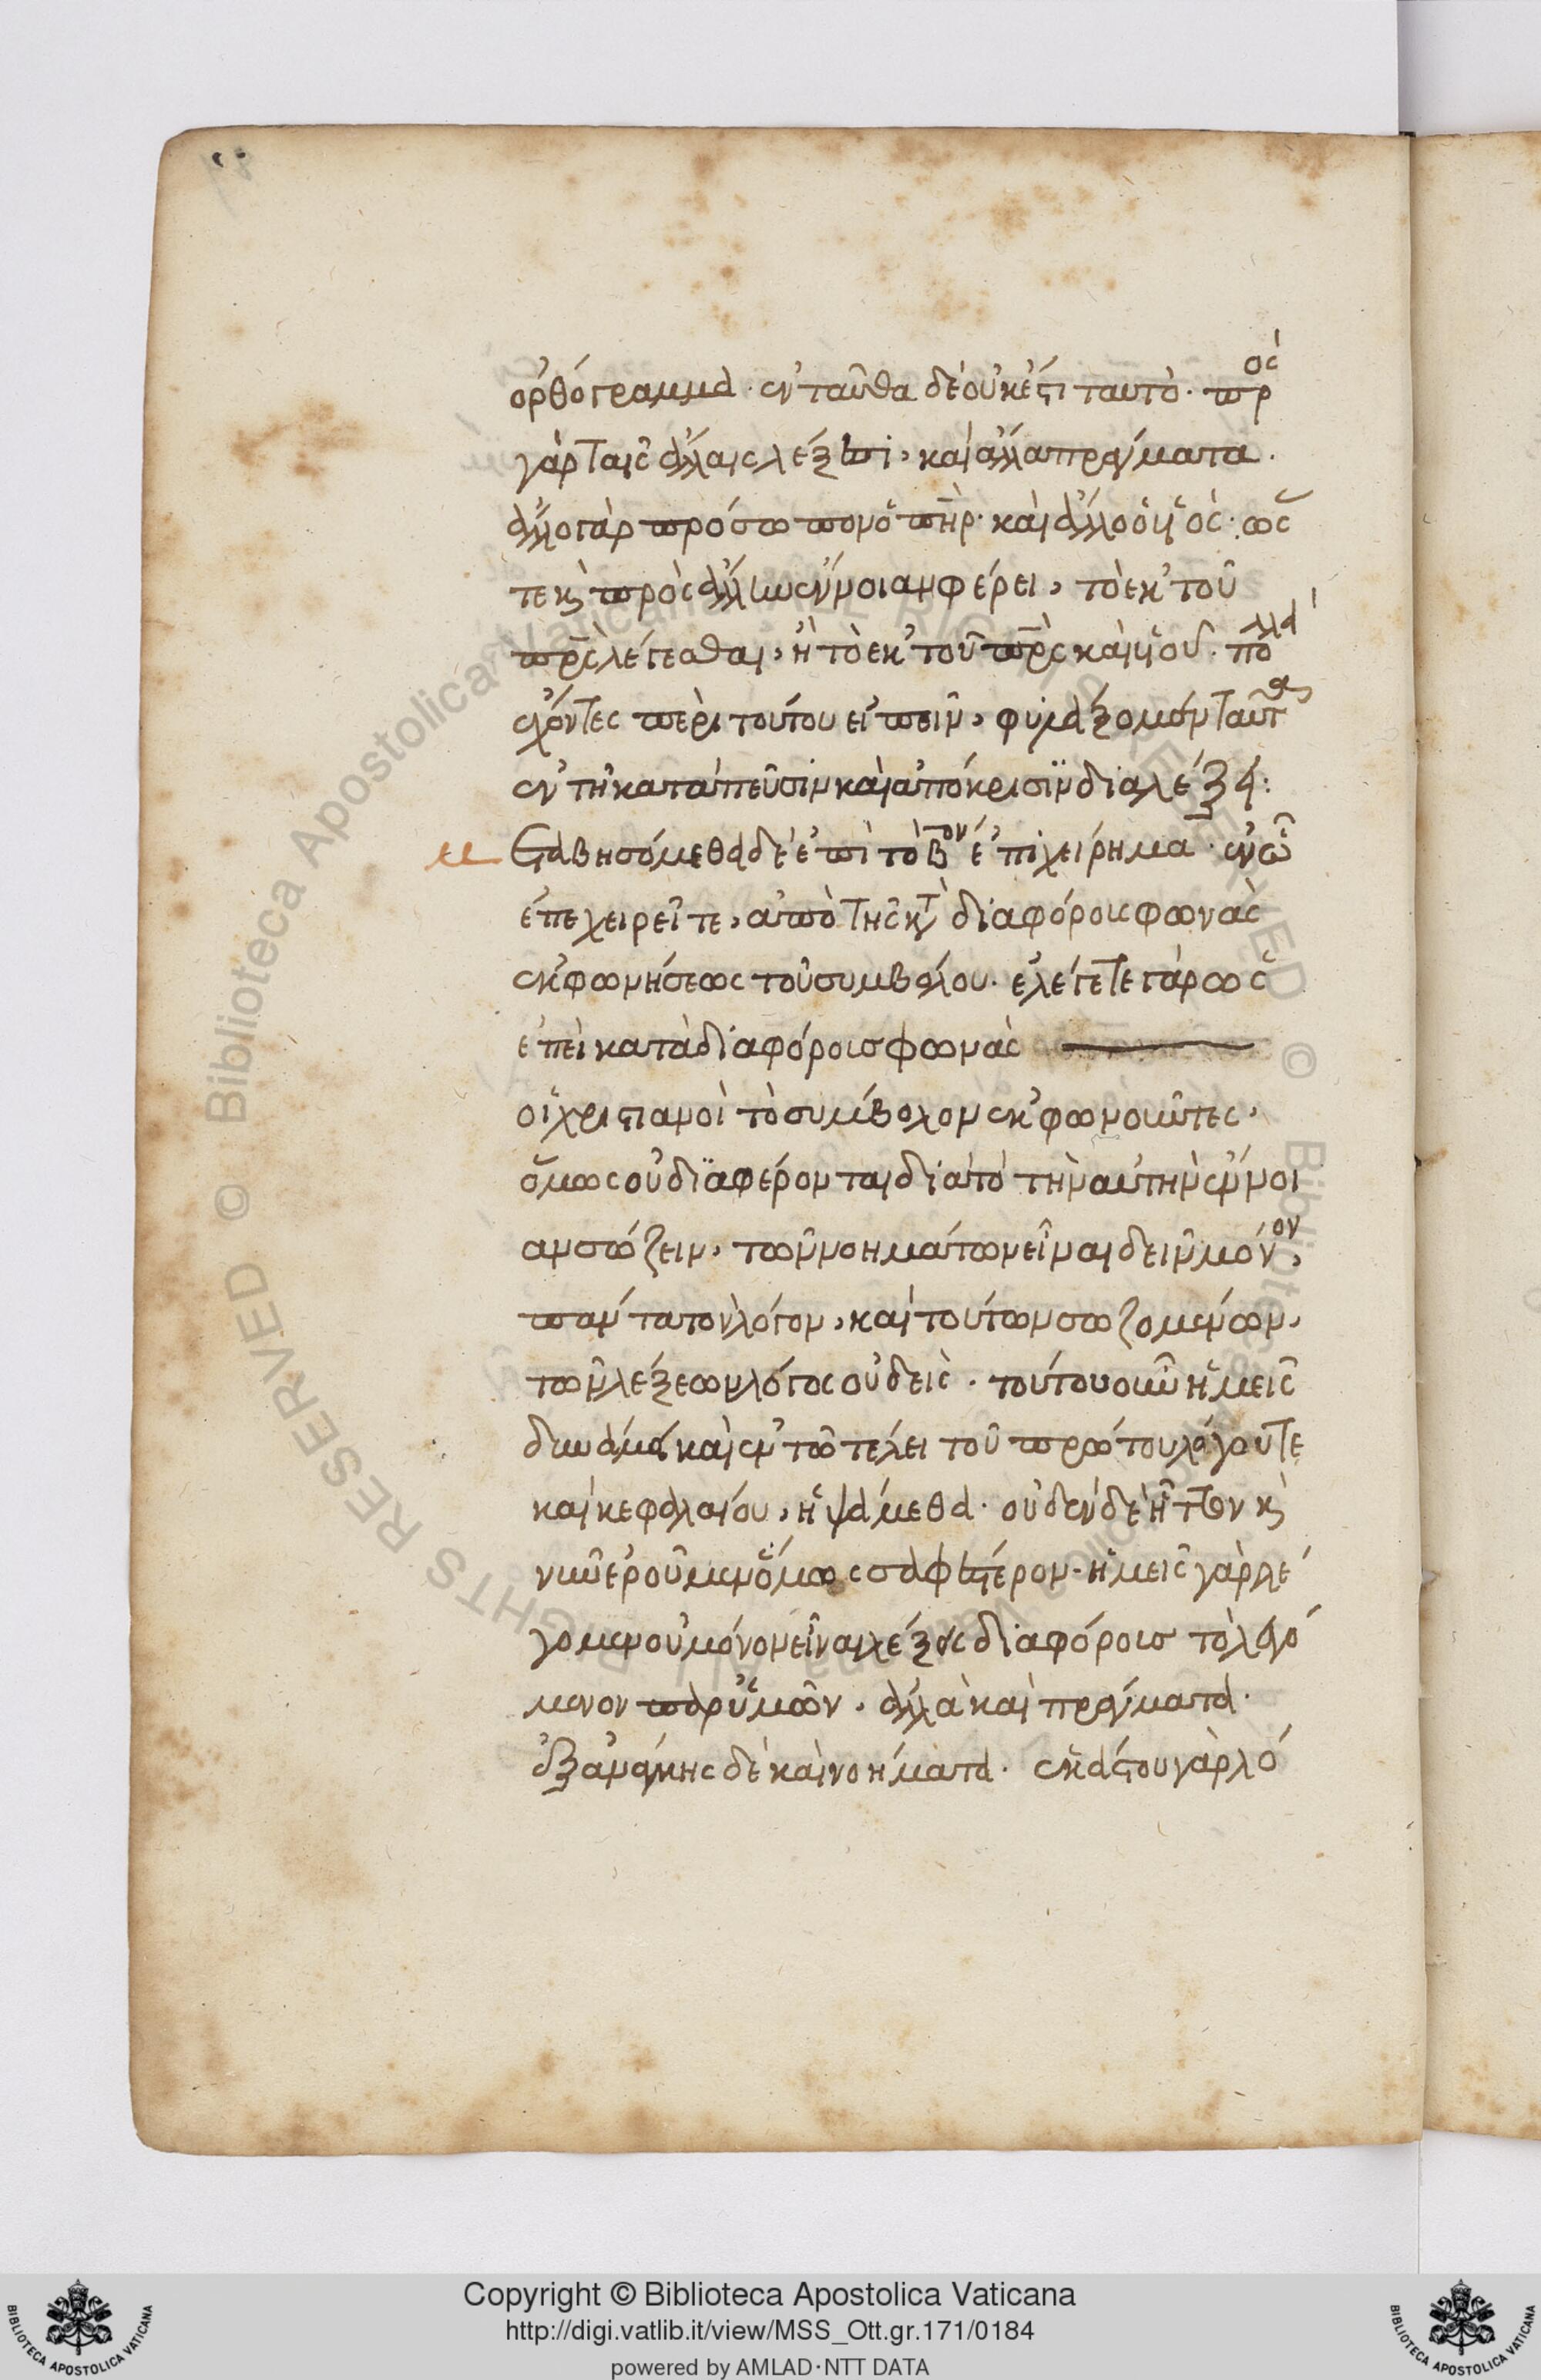 ὀρθόγραμμα. ἐνταῦθα δὲ οὐκέτι ταυτό. πρὸς
γὰρ ταῖς ἄλλαις λέξεσι, καὶ ἄλλα πράγματα.
ἄλλο γὰρ πρόσωπον ὁ πηρ. καὶ ἄλλο ὁ υἱός. ὥς
τε κ(αὶ) πρὸς ἄλλην ἔννοιαν φέρει, τὸ ἐκ τοῦ
πρς λέγεσθαι, ἢ τὸ ἐκ τοῦ πρς καὶ υἱοῦ. πολλὰ
ἔχοντες περὶ τούτου εἰπεῖν, φυλάξομεν ταῦτα
ἐν τῇ κατὰ πεῦσιν καὶ ἀπόκρισιν διαλέξει:
μεταβησόμεθα δὲ ἐπὶ τὸ βον ἐπιχείρημα. ἐν ᾧ
ἐπεχειρεῖτε, ἀπὸ τῆς κατὰ διαφόροις φωνὰς
ἐκφωνήσεως τοῦ συμβόλου. ἐλέγετε γὰρ ὡς
ἐπεὶ κατὰ διαφόροις φωνὰς
οἱ χριστιανοὶ τὸ σύμβολον ἐκφωνοῦντες,
ὅμως οὐ διαφέρονται διὰ τὸ τὴν αὐτὴν ἔννοι
αν σώζειν, τῶν νοημάτων εἶναι δεῖν μόνον,
πάντα τὸν λόγον, καὶ τούτων σωζομένων,
τῶν λέξεων λόγος οὐδεὶς. τούτου οὖν ἡμεῖς
δυνάμει καὶ ἐν τῷ τέλει τοῦ πρώτου λόγου τε
καὶ κεφαλαίου, ἡψάμεθα. οὐδὲν δὲ ἧττον κ(αὶ)
νῦν ἐροῦμεν ὅμως σαφέστερον. ἡμεῖς γὰρ λέ
γομεν οὐ μόνον εἶναι λέξεις διαφόροις τὸ λεγό
μενον παρ' ὑμῶν, ἀλλὰ καὶ πράγματα.
ἐξ ἀνάγκης δὲ καὶ νοήματα. ἑκάστου γὰρ λό
Copyright © Biblioteca Apostolica Vaticana
http://digi.vatlib.it/view/MSS_Ott.gr.171/0184
powered by AMLAD·NTT DATA
BIBLIOTECA APOSTOLICA VATICANA
BIBLIOTECA APOSTOLICA VATICANA